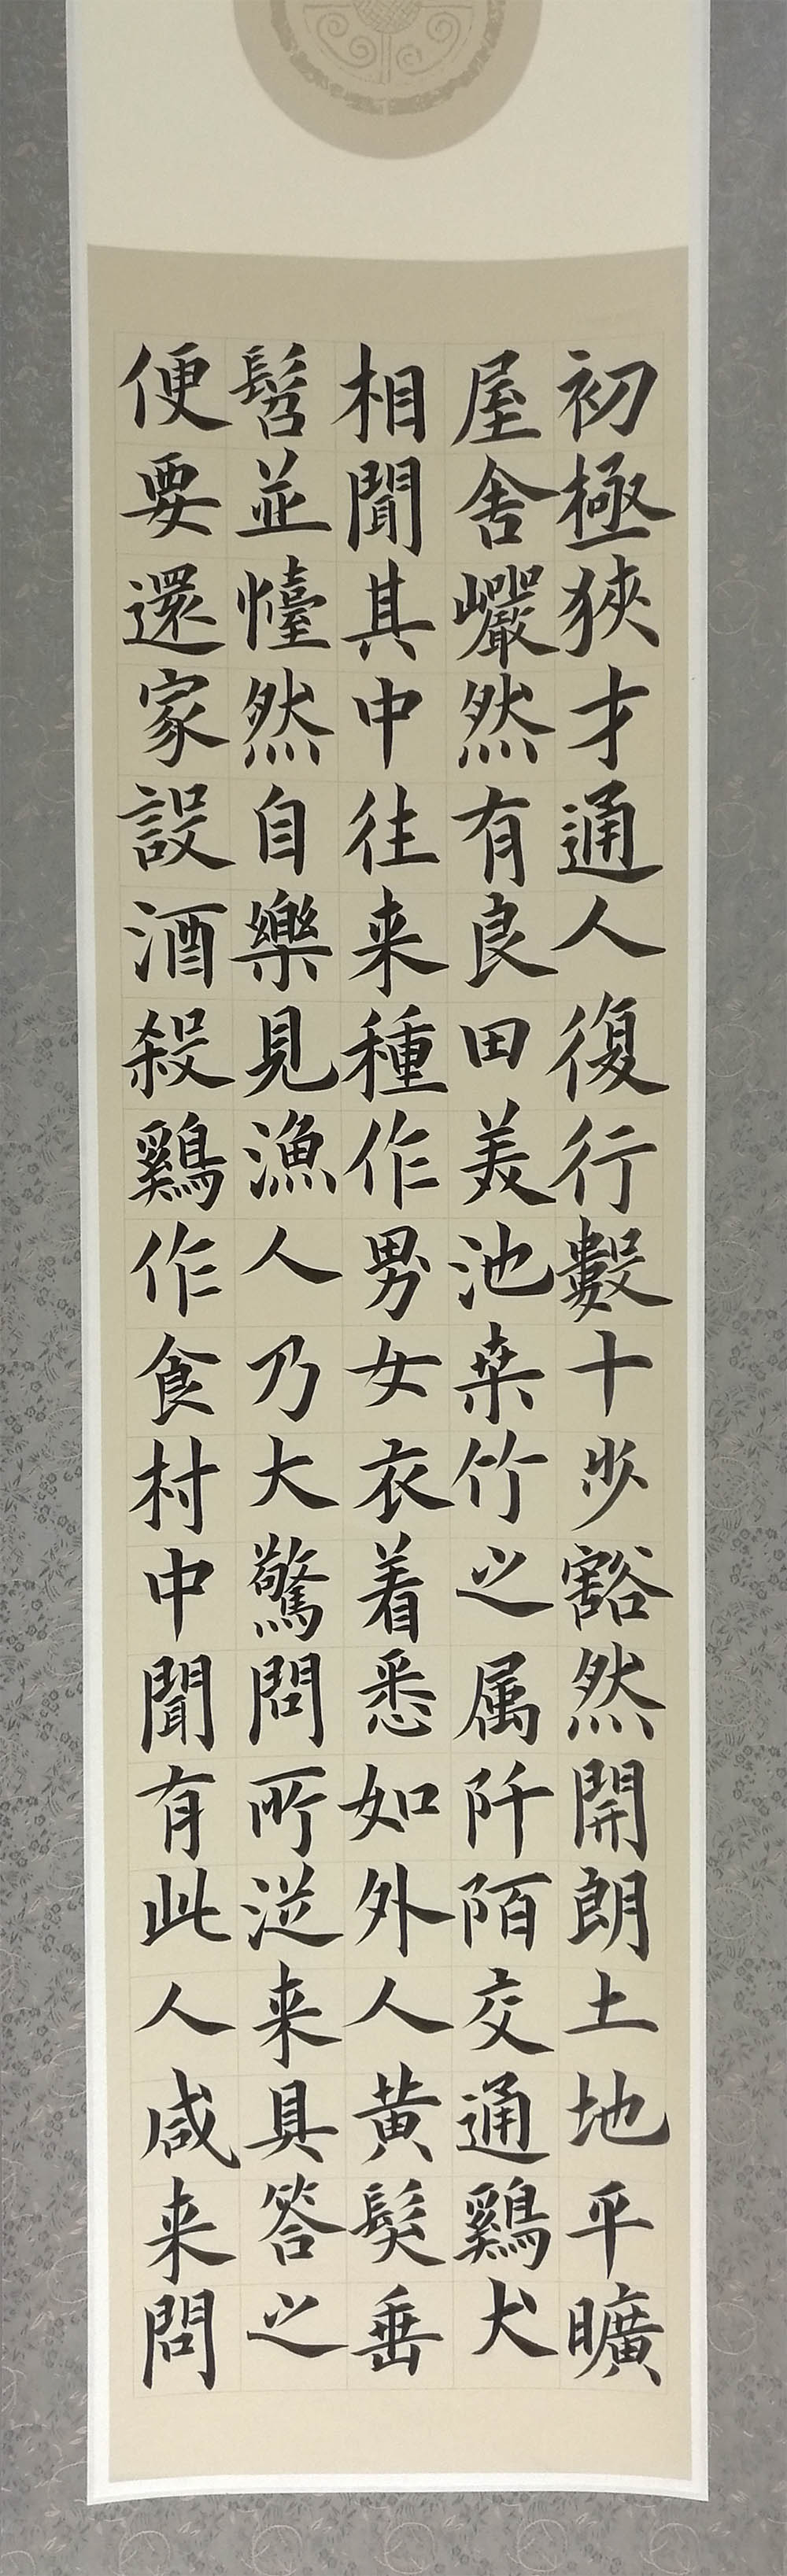 初極狹才通人復行數十步豁然開朗土地平曠
屋舍巖然有良田美池桒竹之属阡陌交通鷄犬
相聞其中往来種作男女衣着悉如外人黄髮垂
髫並懛然自樂見漁人乃大驚問所從来具答之
便要還家設酒殺鷄作食村中聞有此人咸来問